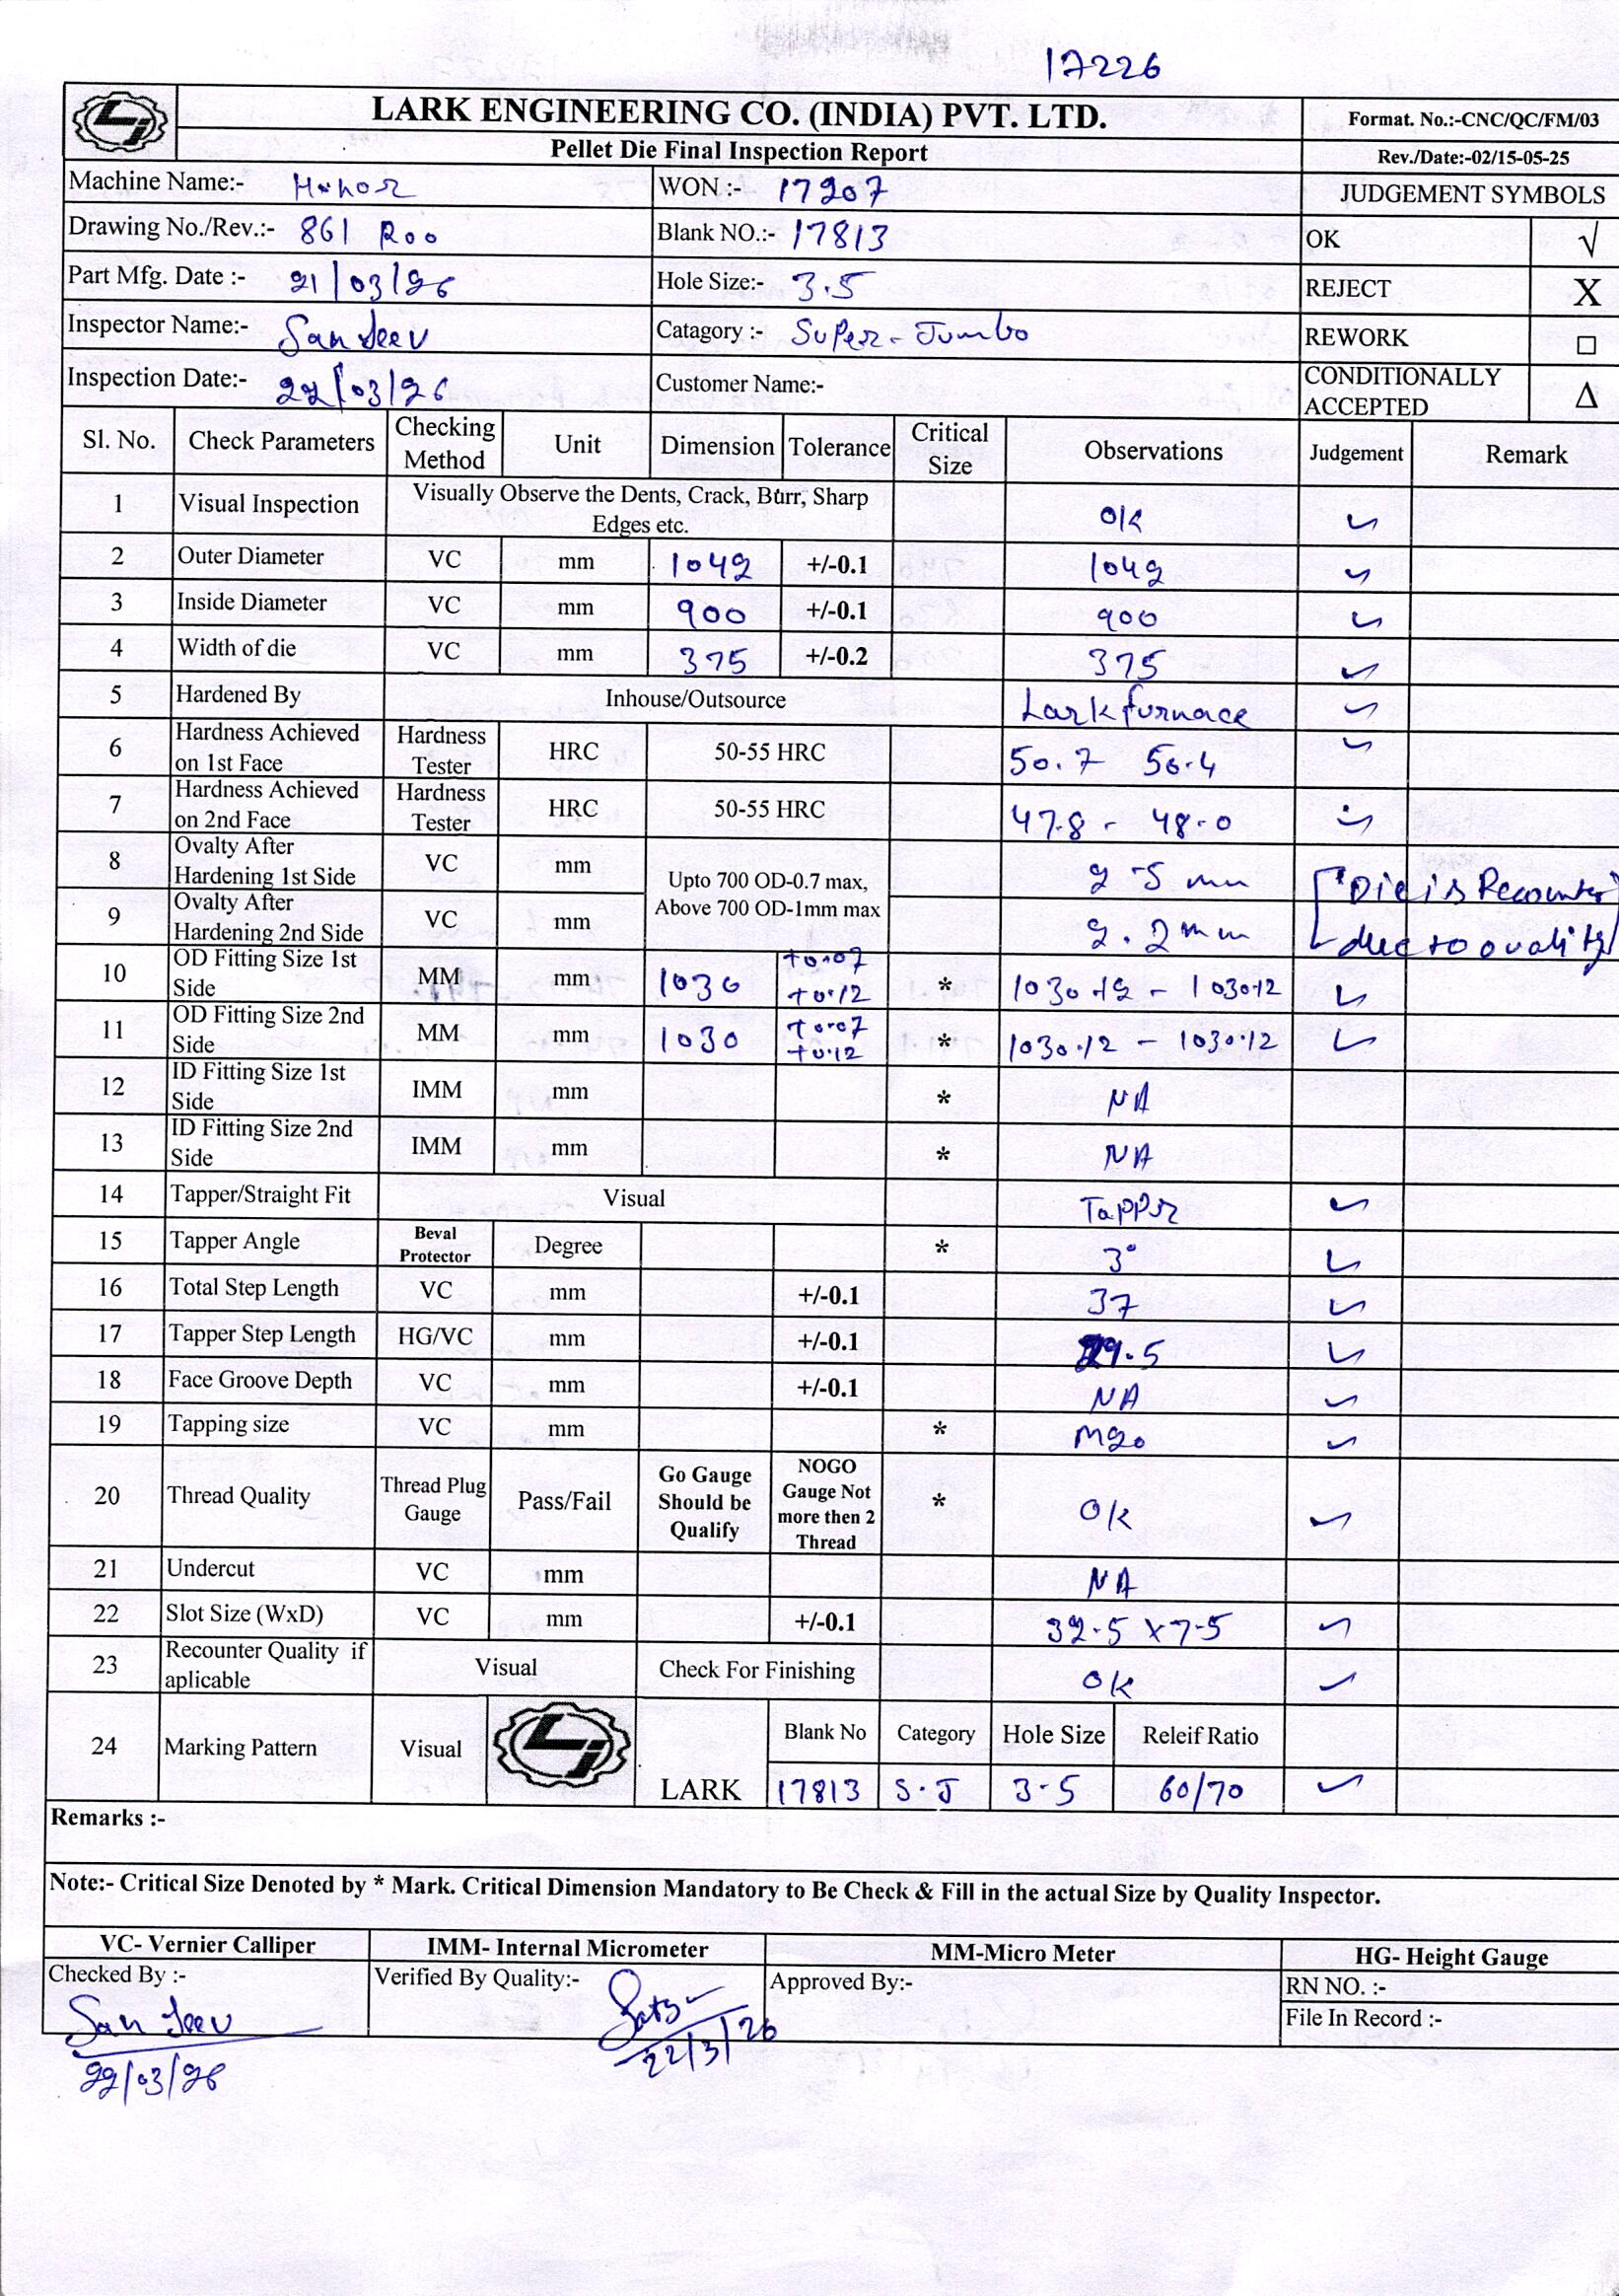 17226
LARK ENGINEERING CO. (INDIA) PVT. LTD.
Format. No.:-CNC/QC/FM/03
Pellet Die Final Inspection Report
Rev./Date:-02/15-05-25
Machine Name:-
WON :- 17207
JUDGEMENT SYMBOLS
Drawing No./Rev.:- 861 R00
Blank NO.:- 17813
OK √
Part Mfg. Date :- 21/03/26
Hole Size:- 3.5
REJECT X
Inspector Name:- Sanjeev
Catagory :- Super-Jumbo
REWORK □
Inspection Date:- 22/03/26
Customer Name:-
CONDITIONALLY ACCEPTED Δ
Sl. No. Check Parameters Checking Method Unit Dimension Tolerance Critical Size Observations Judgement Remark
1 Visual Inspection Visually Observe the Dents, Crack, Burr, Sharp Edges etc. OK ✓
2 Outer Diameter VC mm 1042 +/-0.1 1042 ✓
3 Inside Diameter VC mm 900 +/-0.1 900 ✓
4 Width of die VC mm 375 +/-0.2 375 ✓
5 Hardened By Inhouse/Outsource Lark furnace ✓
6 Hardness Achieved on 1st Face Hardness Tester HRC 50-55 HRC 50.7 50.4 ✓
7 Hardness Achieved on 2nd Face Hardness Tester HRC 50-55 HRC 47.8 - 48.0 ✓
8 Ovalty After Hardening 1st Side VC mm Upto 700 OD-0.7 max, Above 700 OD-1mm max 2.5 mm Die is Recounter
9 Ovalty After Hardening 2nd Side VC mm 2.2mm due to ovality
10 OD Fitting Size 1st Side MM mm 1030 +0.07 +0.12 * 1030.12 - 1030.12 ✓
11 OD Fitting Size 2nd Side MM mm 1030 +0.07 +0.12 * 1030.12 - 1030.12 ✓
12 ID Fitting Size 1st Side IMM mm * NA
13 ID Fitting Size 2nd Side IMM mm * NA
14 Tapper/Straight Fit Visual Tapper ✓
15 Tapper Angle Beval Protector Degree * 3° ✓
16 Total Step Length VC mm +/-0.1 37 ✓
17 Tapper Step Length HG/VC mm +/-0.1 ✓
18 Face Groove Depth VC mm +/-0.1 NA ✓
19 Tapping size VC mm * M20 ✓
20 Thread Quality Thread Plug Gauge Pass/Fail Go Gauge Should be Qualify NOGO Gauge Not more then 2 Thread * OK ✓
21 Undercut VC mm NA
22 Slot Size (WxD) VC mm +/-0.1 32.5 x 7.5 ✓
23 Recounter Quality if aplicable Visual Check For Finishing OK ✓
24 Marking Pattern Visual LARK Blank No Category Hole Size Releif Ratio
17813 S.J 3.5 60/70 ✓
Remarks :-
Note:- Critical Size Denoted by * Mark. Critical Dimension Mandatory to Be Check & Fill in the actual Size by Quality Inspector.
VC- Vernier Calliper IMM- Internal Micrometer MM-Micro Meter HG- Height Gauge
Checked By :- Verified By Quality:- Approved By:- RN NO. :-
File In Record :-
Sanjeev
22/03/26
22/3/26